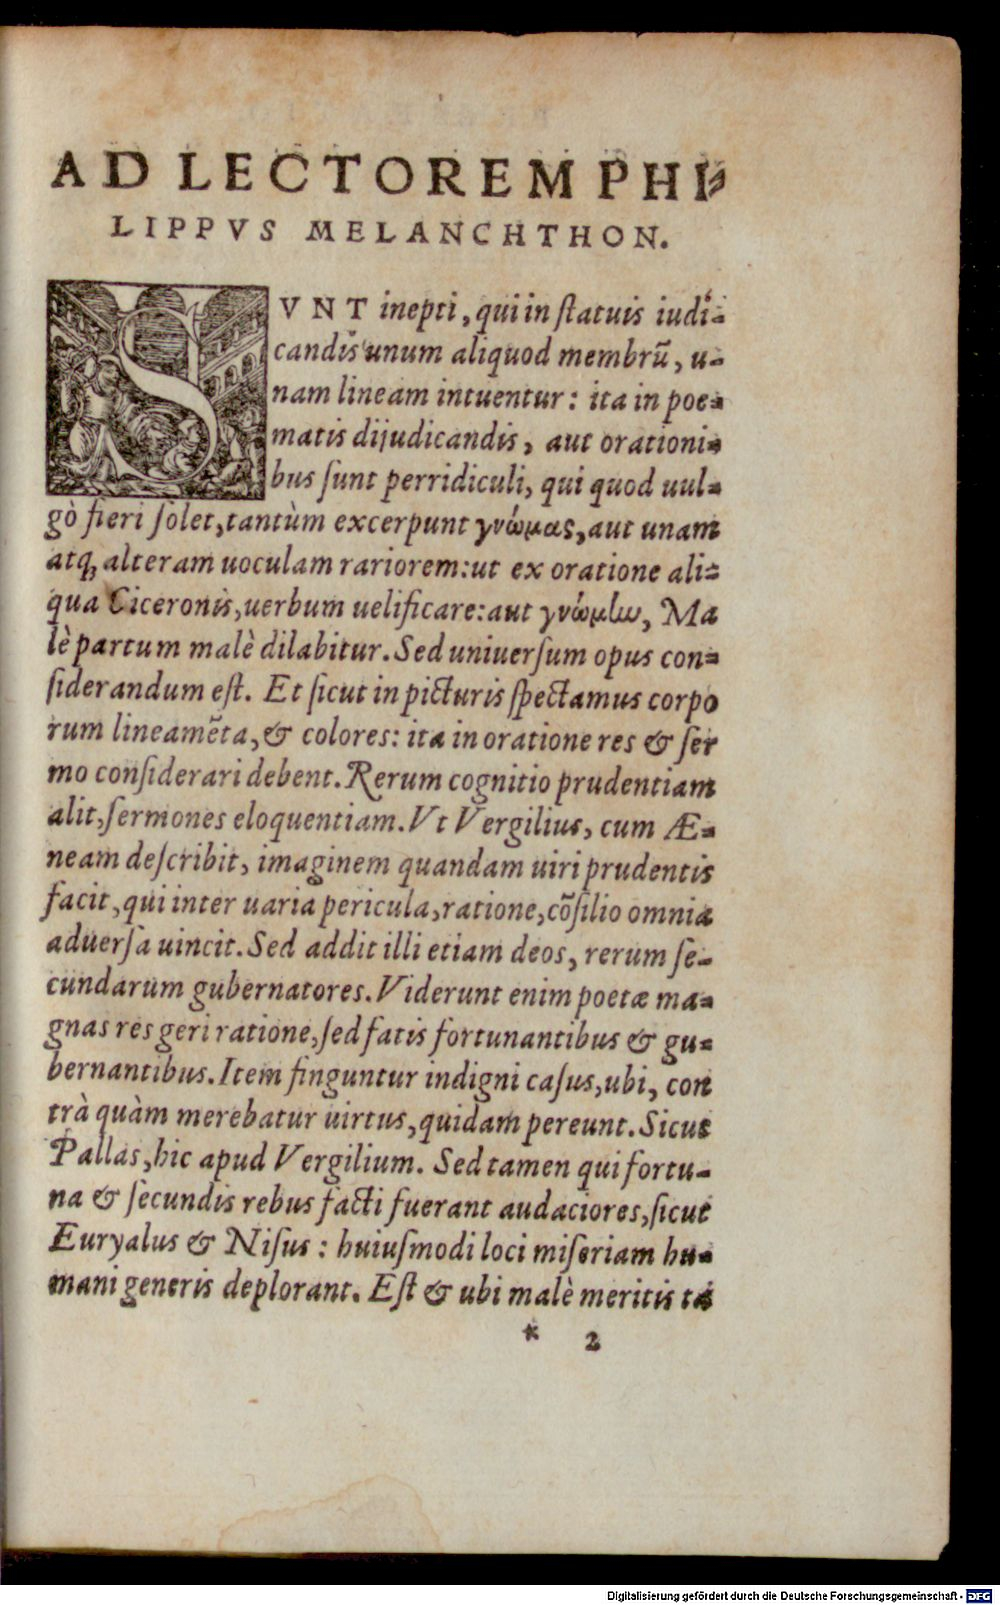 AD LECTOREM PHI-
LIPPVS MELANCHTHON.
SVNT inepti, qui in ſtatuis iudi-
candis unum aliquod membrũ, u-
nam lineam intuentur: ita in poe-
matis dijudicandis, aut orationi-
bus ſunt perridiculi, qui quod uul-
gò fieri ſolet, tantùm excerpunt γνώμας, aut unam
atq; alteram uoculam rariorem: ut ex oratione ali-
qua Ciceronis, uerbum uelificare: aut γνώμην, Ma
lè partum malè dilabitur. Sed uniuerſum opus con-
ſiderandum eſt. Et ſicut in picturis ſpectamus corpo
rum lineamẽta, & colores: ita in oratione res & ſer
mo conſiderari debent. Rerum cognitio prudentiam
alit, ſermones eloquentiam. Vt Vergilius, cum Æ-
neam deſcribit, imaginem quandam uiri prudentis
facit, qui inter uaria pericula, ratione, cõſilio omnia
aduerſa uincit. Sed addit illi etiam deos, rerum ſe-
cundarum gubernatores. Viderunt enim poetæ ma-
gnas res geri ratione, ſed fatis fortunantibus & gu-
bernantibus. Item finguntur indigni caſus, ubi, con
trà quàm merebatur uirtus, quidam pereunt. Sicut
Pallas, hic apud Vergilium. Sed tamen qui fortu-
na & ſecundis rebus facti fuerant audaciores, ſicut
Euryalus & Niſus: huiuſmodi loci miſeriam hu-
mani generis deplorant. Eſt & ubi malè meritis tã
* 2
Digitalisierung gefördert durch die Deutsche Forschungsgemeinschaft - DFG